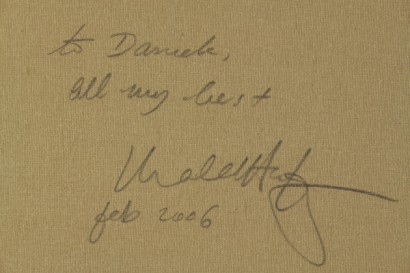 to Daniek,
all my best
feb 2006